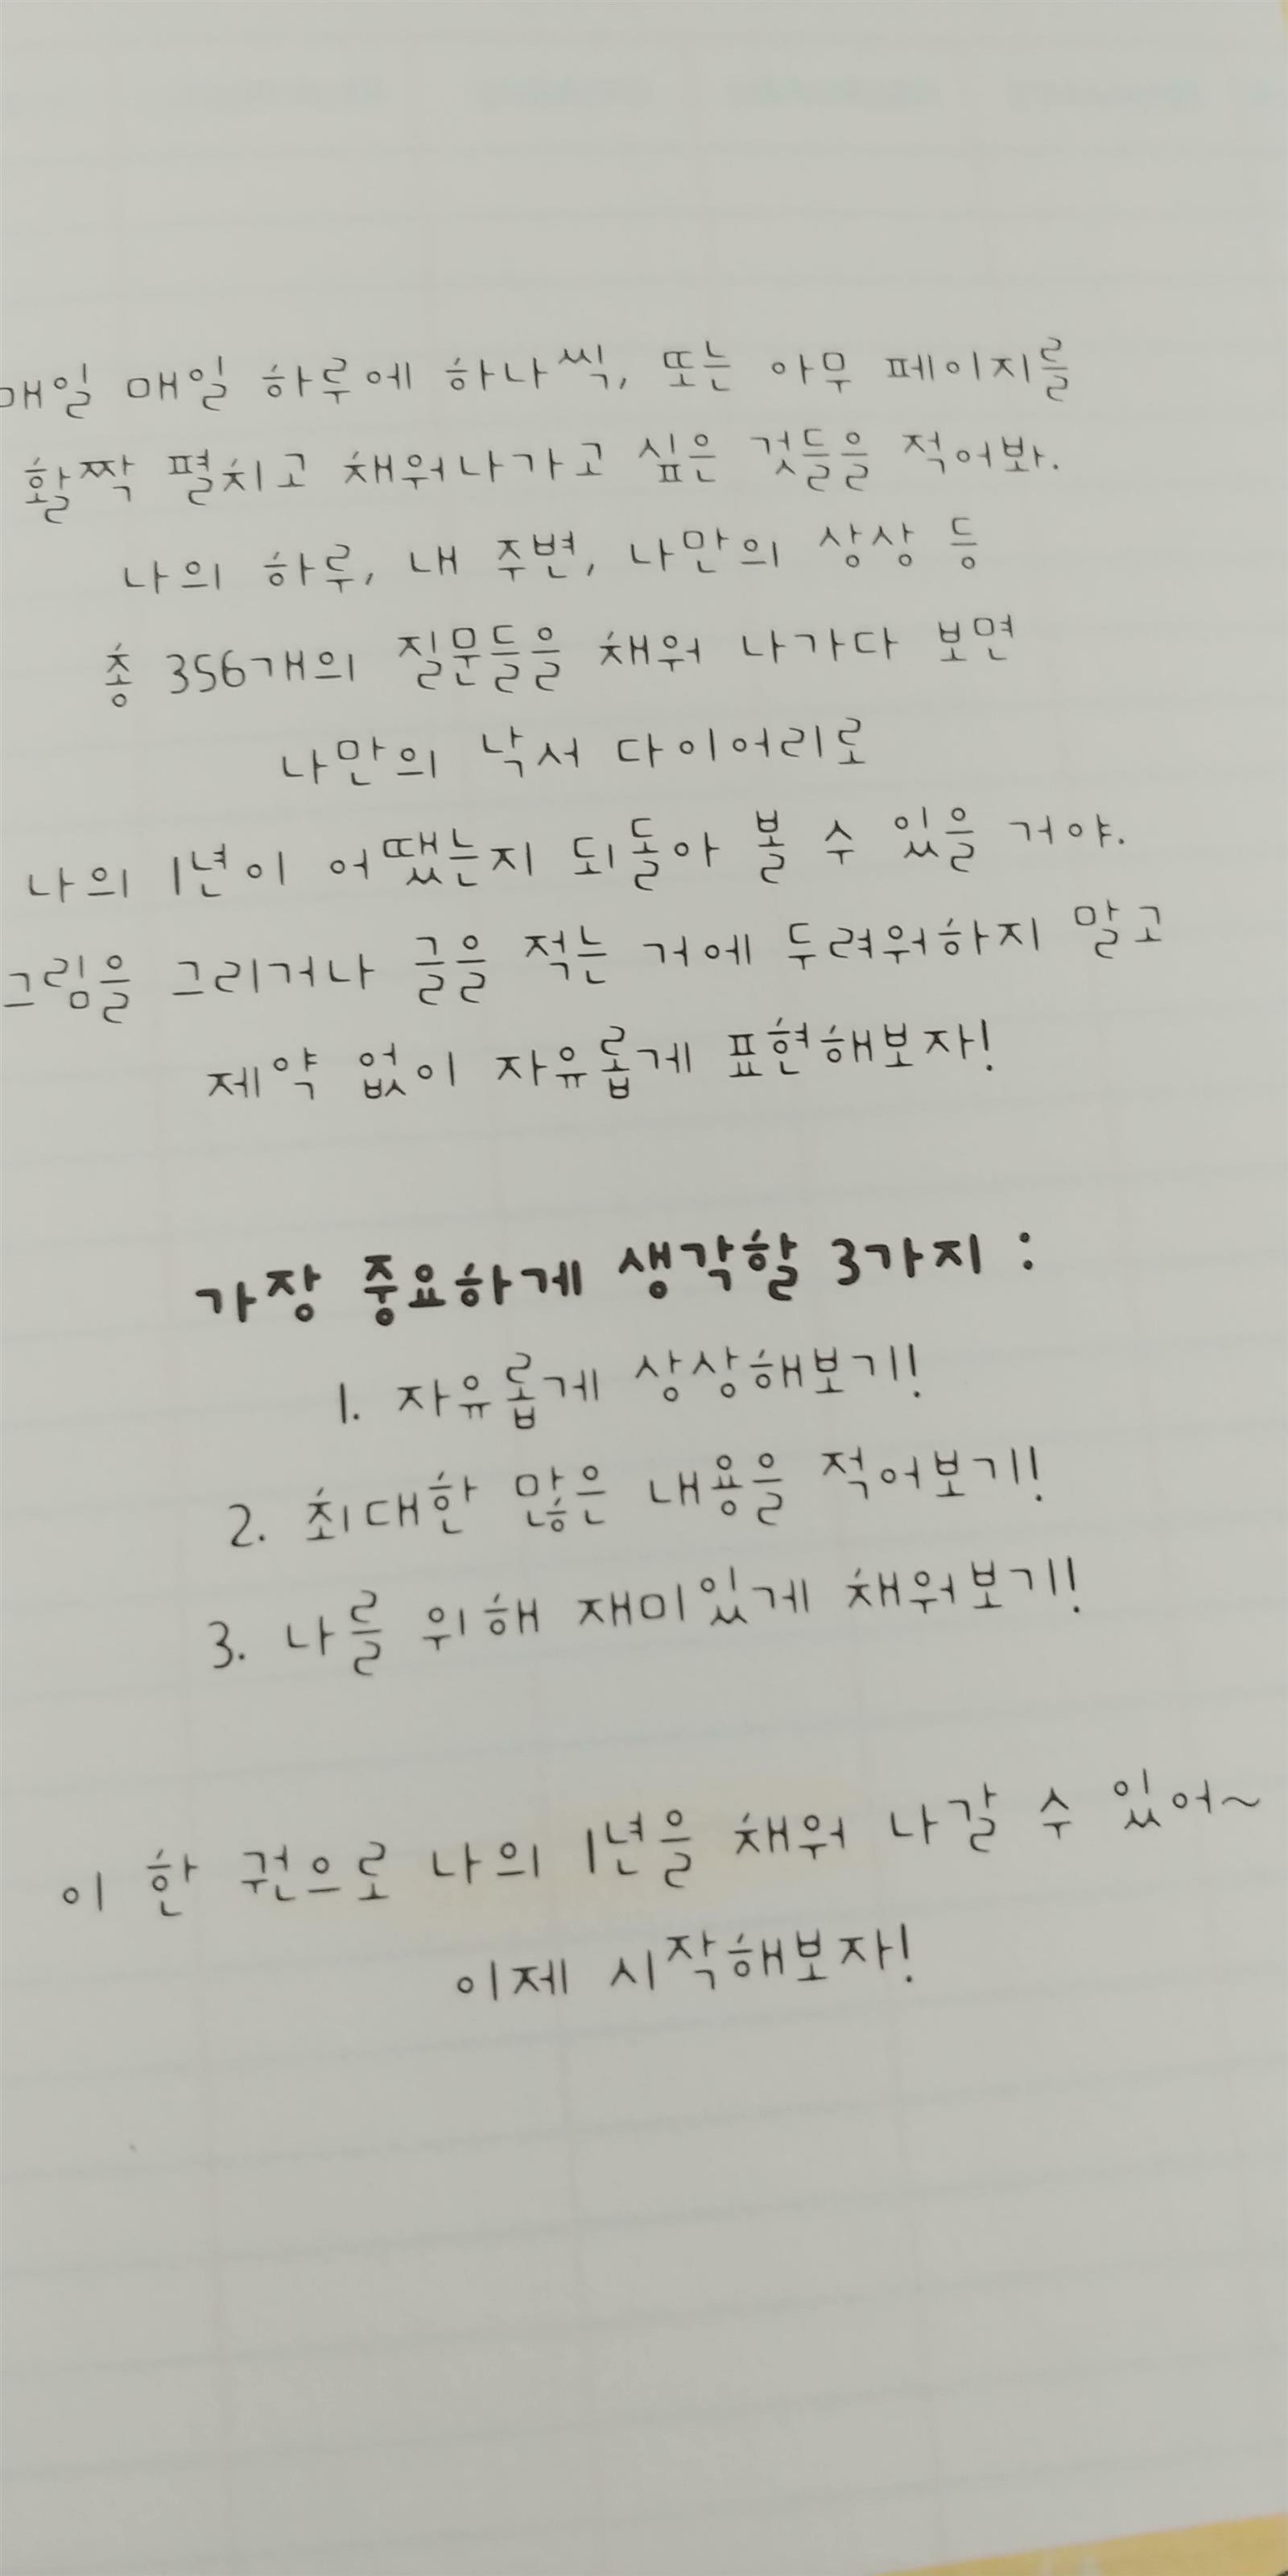 매일 매일 하루에 하나씩, 또는 아무 페이지를
활짝 펼치고 채워나가고 싶은 것들을 적어봐.
나의 하루, 내 주변, 나만의 상상 등
총 356개의 질문들을 채워 나가다 보면
나만의 낙서 다이어리로
나의 1년이 어땠는지 되돌아 볼 수 있을 거야.
그림을 그리거나 글을 적는 거에 두려워하지 말고
제약 없이 자유롭게 표현해보자!
가장 중요하게 생각할 3가지 :
1. 자유롭게 상상해보기!
2. 최대한 많은 내용을 적어보기!
3. 나를 위해 재미있게 채워보기!
이 한 권으로 나의 1년을 채워 나갈 수 있어~
이제 시작해보자!